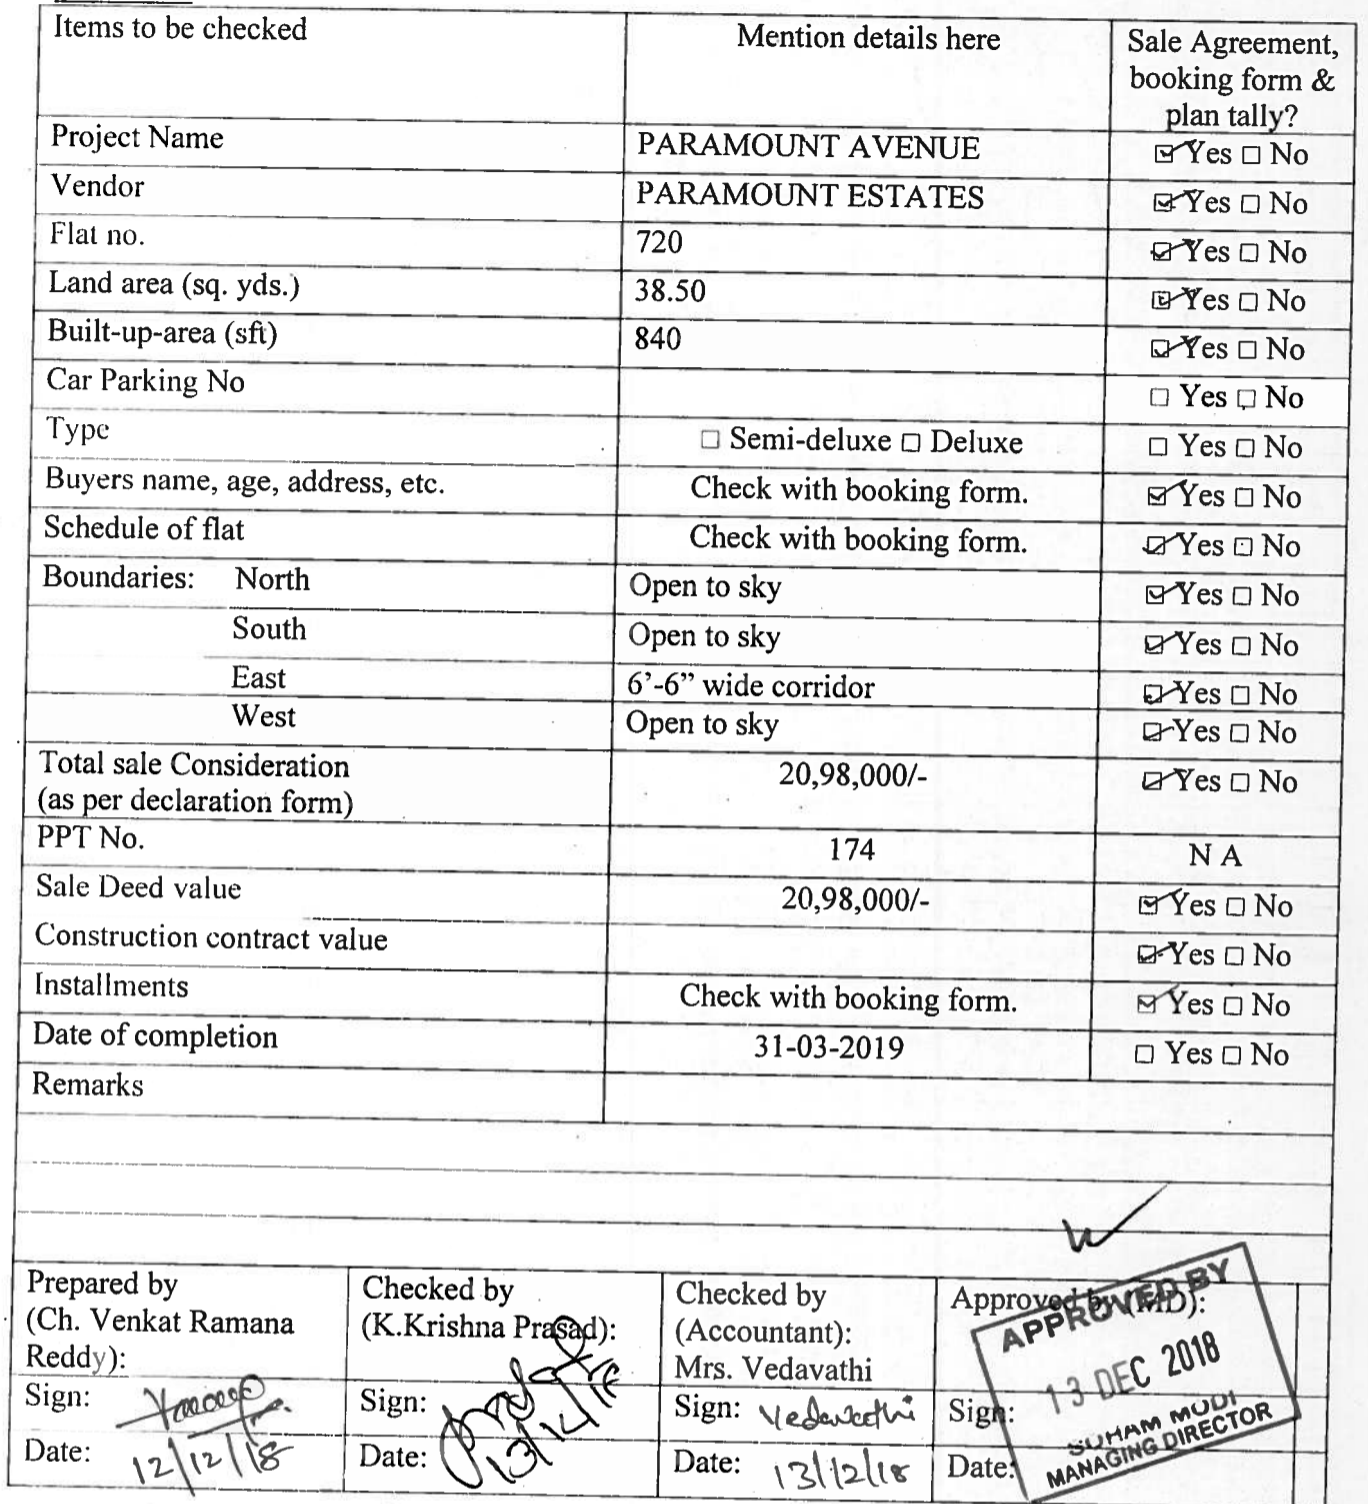 Items to be checked Mention details here Sale Agreement,
booking form &
plan tally?
Project Name PARAMOUNT AVENUE ☑ Yes ☐ No
Vendor PARAMOUNT ESTATES ☑ Yes ☐ No
Flat no. 720 ☑ Yes ☐ No
Land area (sq. yds.) 38.50 ☑ Yes ☐ No
Built-up-area (sft) 840 ☑ Yes ☐ No
Car Parking No ☐ Yes ☐ No
Type ☐ Semi-deluxe ☐ Deluxe ☐ Yes ☐ No
Buyers name, age, address, etc. Check with booking form. ☑ Yes ☐ No
Schedule of flat Check with booking form. ☑ Yes ☐ No
Boundaries: North Open to sky ☑ Yes ☐ No
South Open to sky ☑ Yes ☐ No
East 6’-6” wide corridor ☑ Yes ☐ No
West Open to sky ☑ Yes ☐ No
Total sale Consideration 20,98,000/- ☑ Yes ☐ No
(as per declaration form)
PPT No. 174 N A
Sale Deed value 20,98,000/- ☑ Yes ☐ No
Construction contract value ☑ Yes ☐ No
Installments Check with booking form. ☑ Yes ☐ No
Date of completion 31-03-2019 ☐ Yes ☐ No
Remarks
Prepared by
(Ch. Venkat Ramana
Reddy):
Sign:
Date: 12/12/18
Checked by
(K.Krishna Prasad):
Sign:
Date: 13/12/18
Checked by
(Accountant):
Mrs. Vedavathi
Sign: Vedavathi
Date: 13/12/18
Approved by (MD):
Sign:
Date:
APPROVED BY
13 DEC 2018
SOHAM MODI
MANAGING DIRECTOR